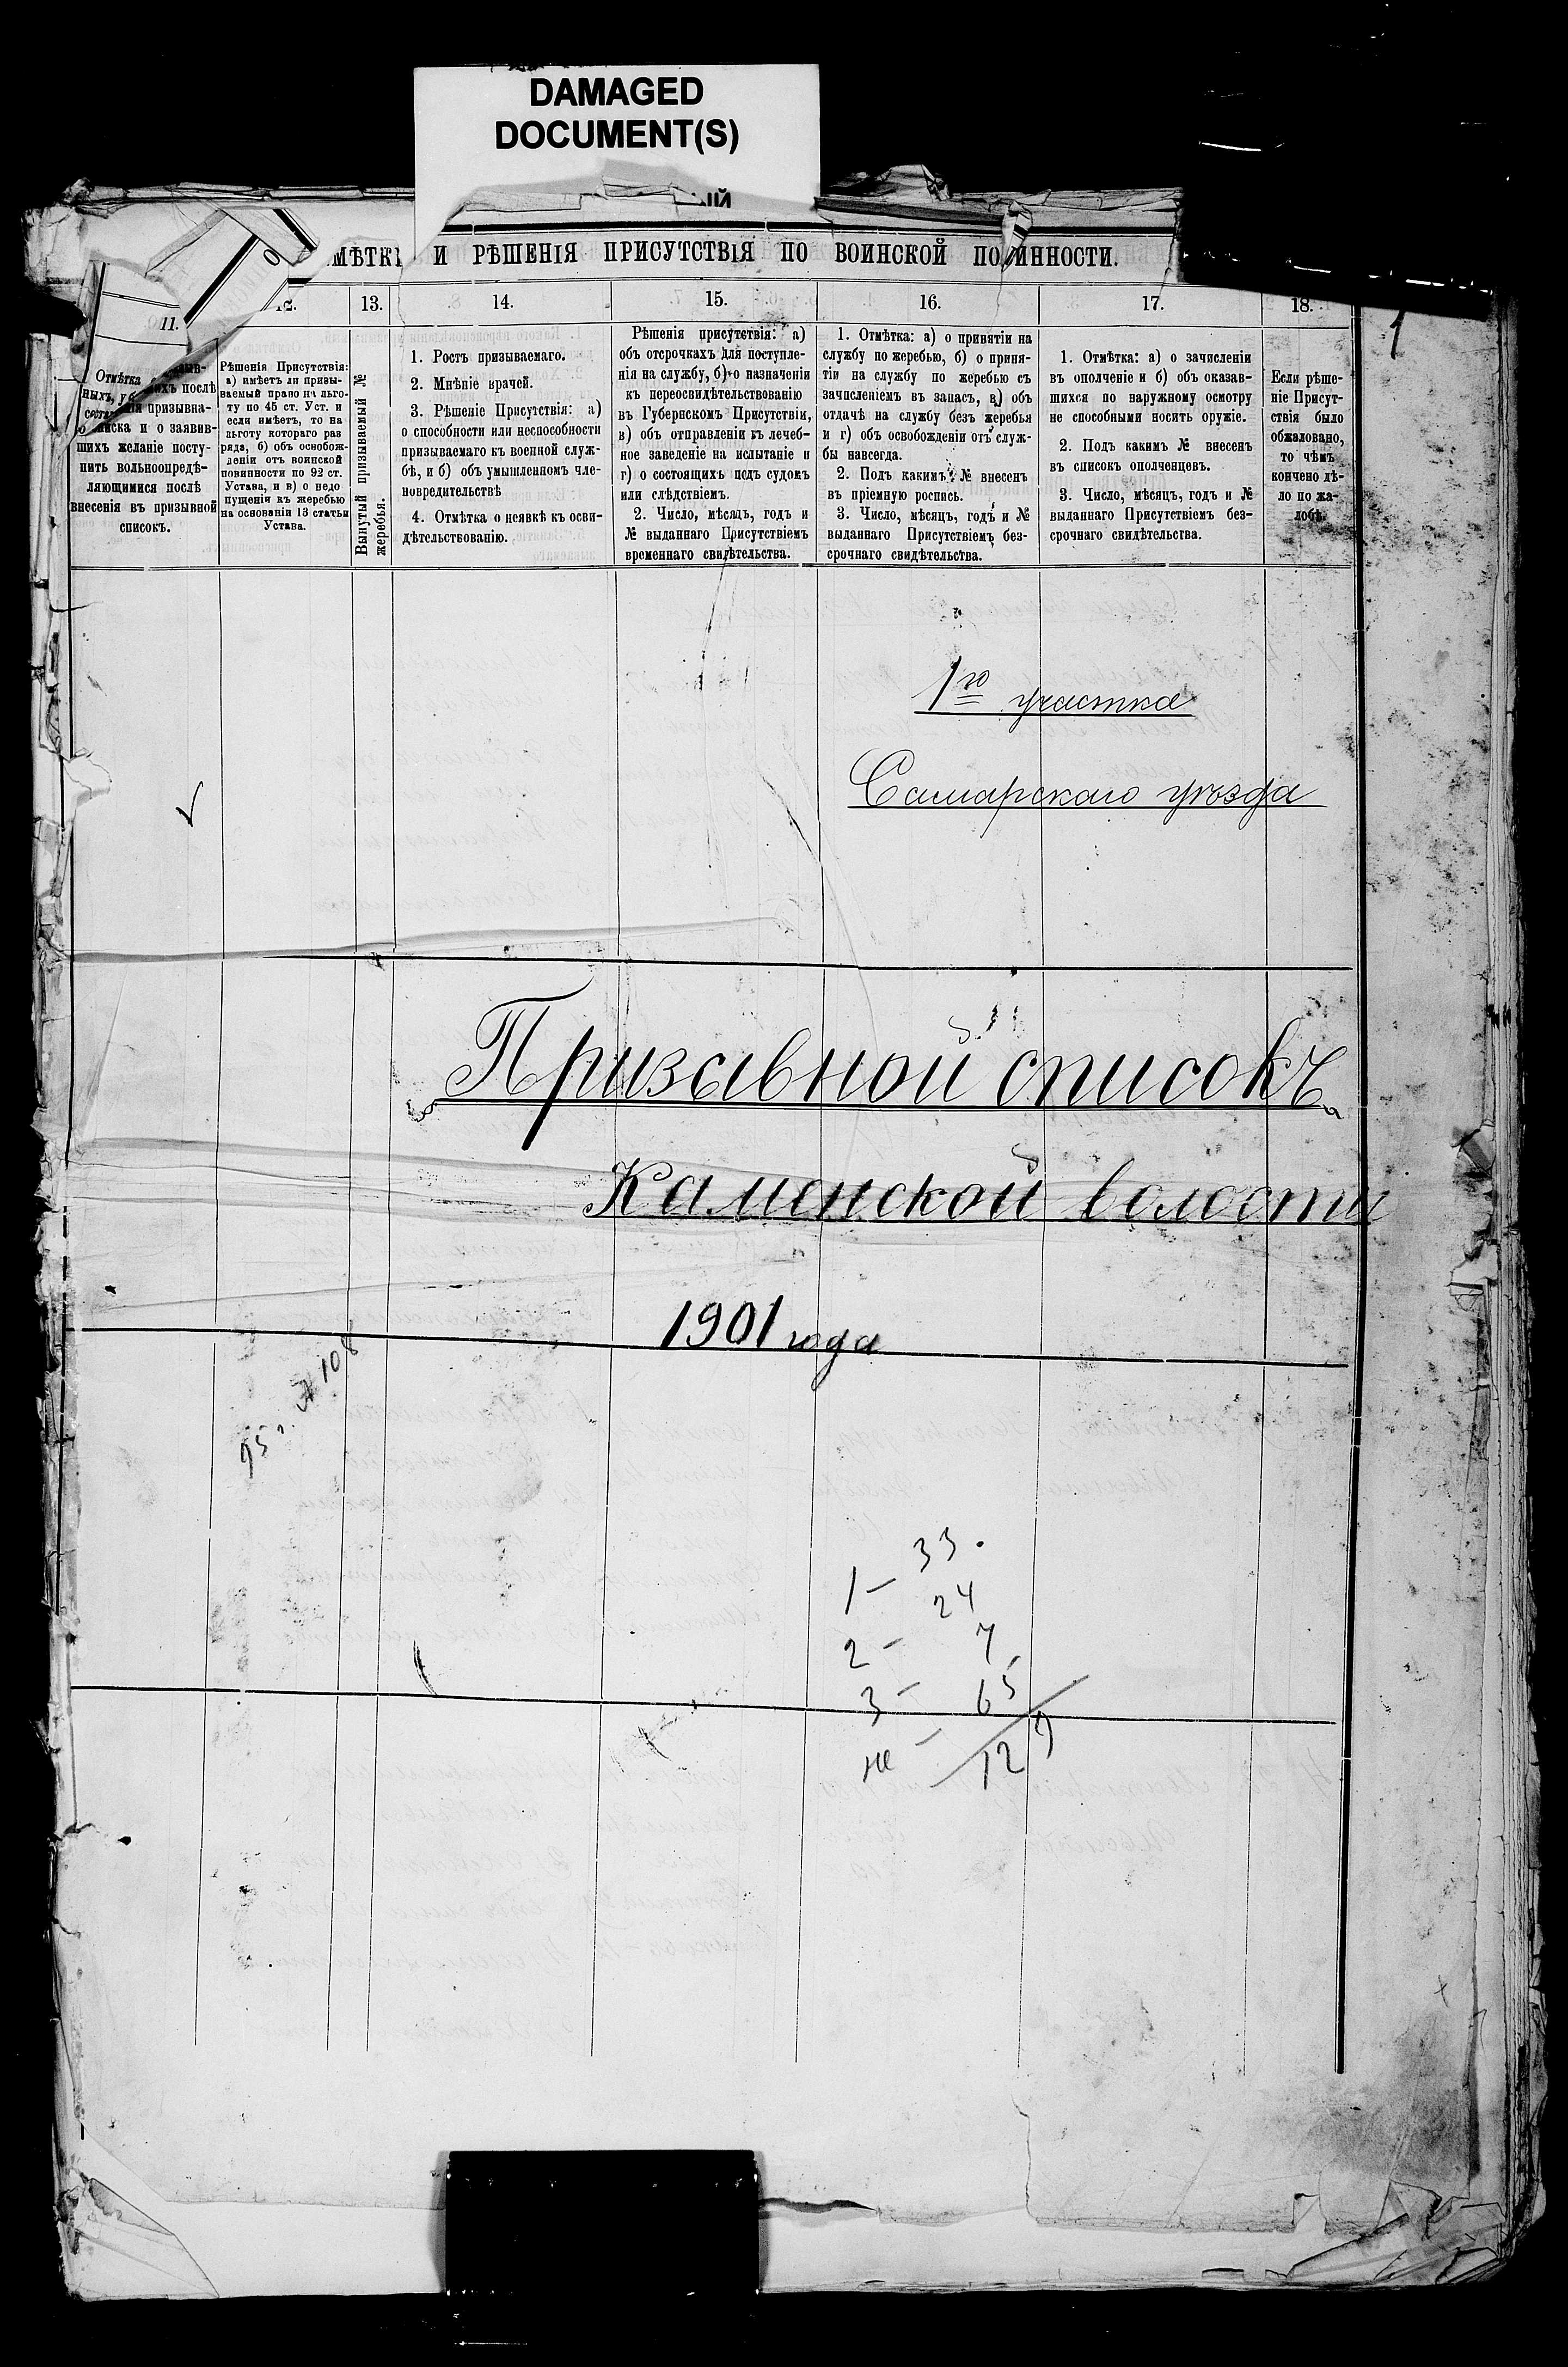 DAMAGED
DOCUMENT(S)
ЫЙ
МѢТКИ И РѢШЕНІЯ ПРИСУТСТВІЯ ПО ВОИНСКОЙ ПОВИННОСТИ.
11.
12.
13.
14.
15.
16.
17.
18.
1
Отмѣтка
ныхъ, ихъ послѣ
призывна-
списка и о заявив-
шихъ желаніе посту-
пить вольноопредѣ-
ляющимися послѣ
внесенія въ призывной
списокъ.
Рѣшенія Присутствія:
а) имѣетъ ли призы-
ваемый право на льго-
ту по 45 ст. Уст. и
если имѣетъ, то на
льготу котораго раз
ряда, б) объ освобож-
деніи отъ воинской
повинности по 92 ст.
Устава, и в) о недо
пущеніи къ жеребью
на основаніи 13 статьи
Устава.
Вынутый призываемый №
жеребья.
1. Ростъ призываемаго.
2. Мнѣніе врачей.
3. Рѣшеніе Присутствія: а)
о способности или неспособности
призываемаго къ военной служ-
бѣ, и б) объ умышленномъ чле-
новредительствѣ
4. Отмѣтка о неявкѣ къ осви-
дѣтельствованію.
Рѣшенія присутствія: а)
объ отсрочкахъ для поступле-
нія на службу, б) о назначеніи
къ переосвидѣтельствованію
въ Губернскомъ Присутствіи,
в) объ отправленіи въ лечеб-
ное заведеніе на испытаніе и
г) о состоящихъ подъ судомъ
или слѣдствіемъ.
2. Число, мѣсяцъ, годъ и
№ выданнаго Присутствіемъ
временнаго свидѣтельства.
1. Отмѣтка: а) о принятіи на
службу по жеребью, б) о приня-
тіи на службу по жеребью съ
зачисленіемъ въ запасъ, в) объ
отдачѣ на службу безъ жеребья
и г) объ освобожденіи отъ служ-
бы навсегда.
2. Подъ какимъ № внесенъ
въ пріемную роспись.
3. Число, мѣсяцъ, годъ и №
выданнаго Присутствіемъ без-
срочнаго свидѣтельства.
1. Отмѣтка: а) о зачисленіи
въ ополченіе и б) объ оказав-
шихся по наружному осмотру
не способными носить оружіе.
2. Подъ какимъ № внесенъ
въ списокъ ополченцевъ.
3. Число, мѣсяцъ, годъ и №
выданнаго Присутствіемъ без-
срочнаго свидѣтельства.
Если рѣше-
ніе Присут-
ствія было
обжаловано,
то чѣмъ
кончено дѣ-
ло по жа-
лобѣ.
1го участка
Самарскаго уѣзда
Призывной списокъ
Каменской волости
1901 года
108
1 – 33.
2 – 24
3 – 7
не – 65
129